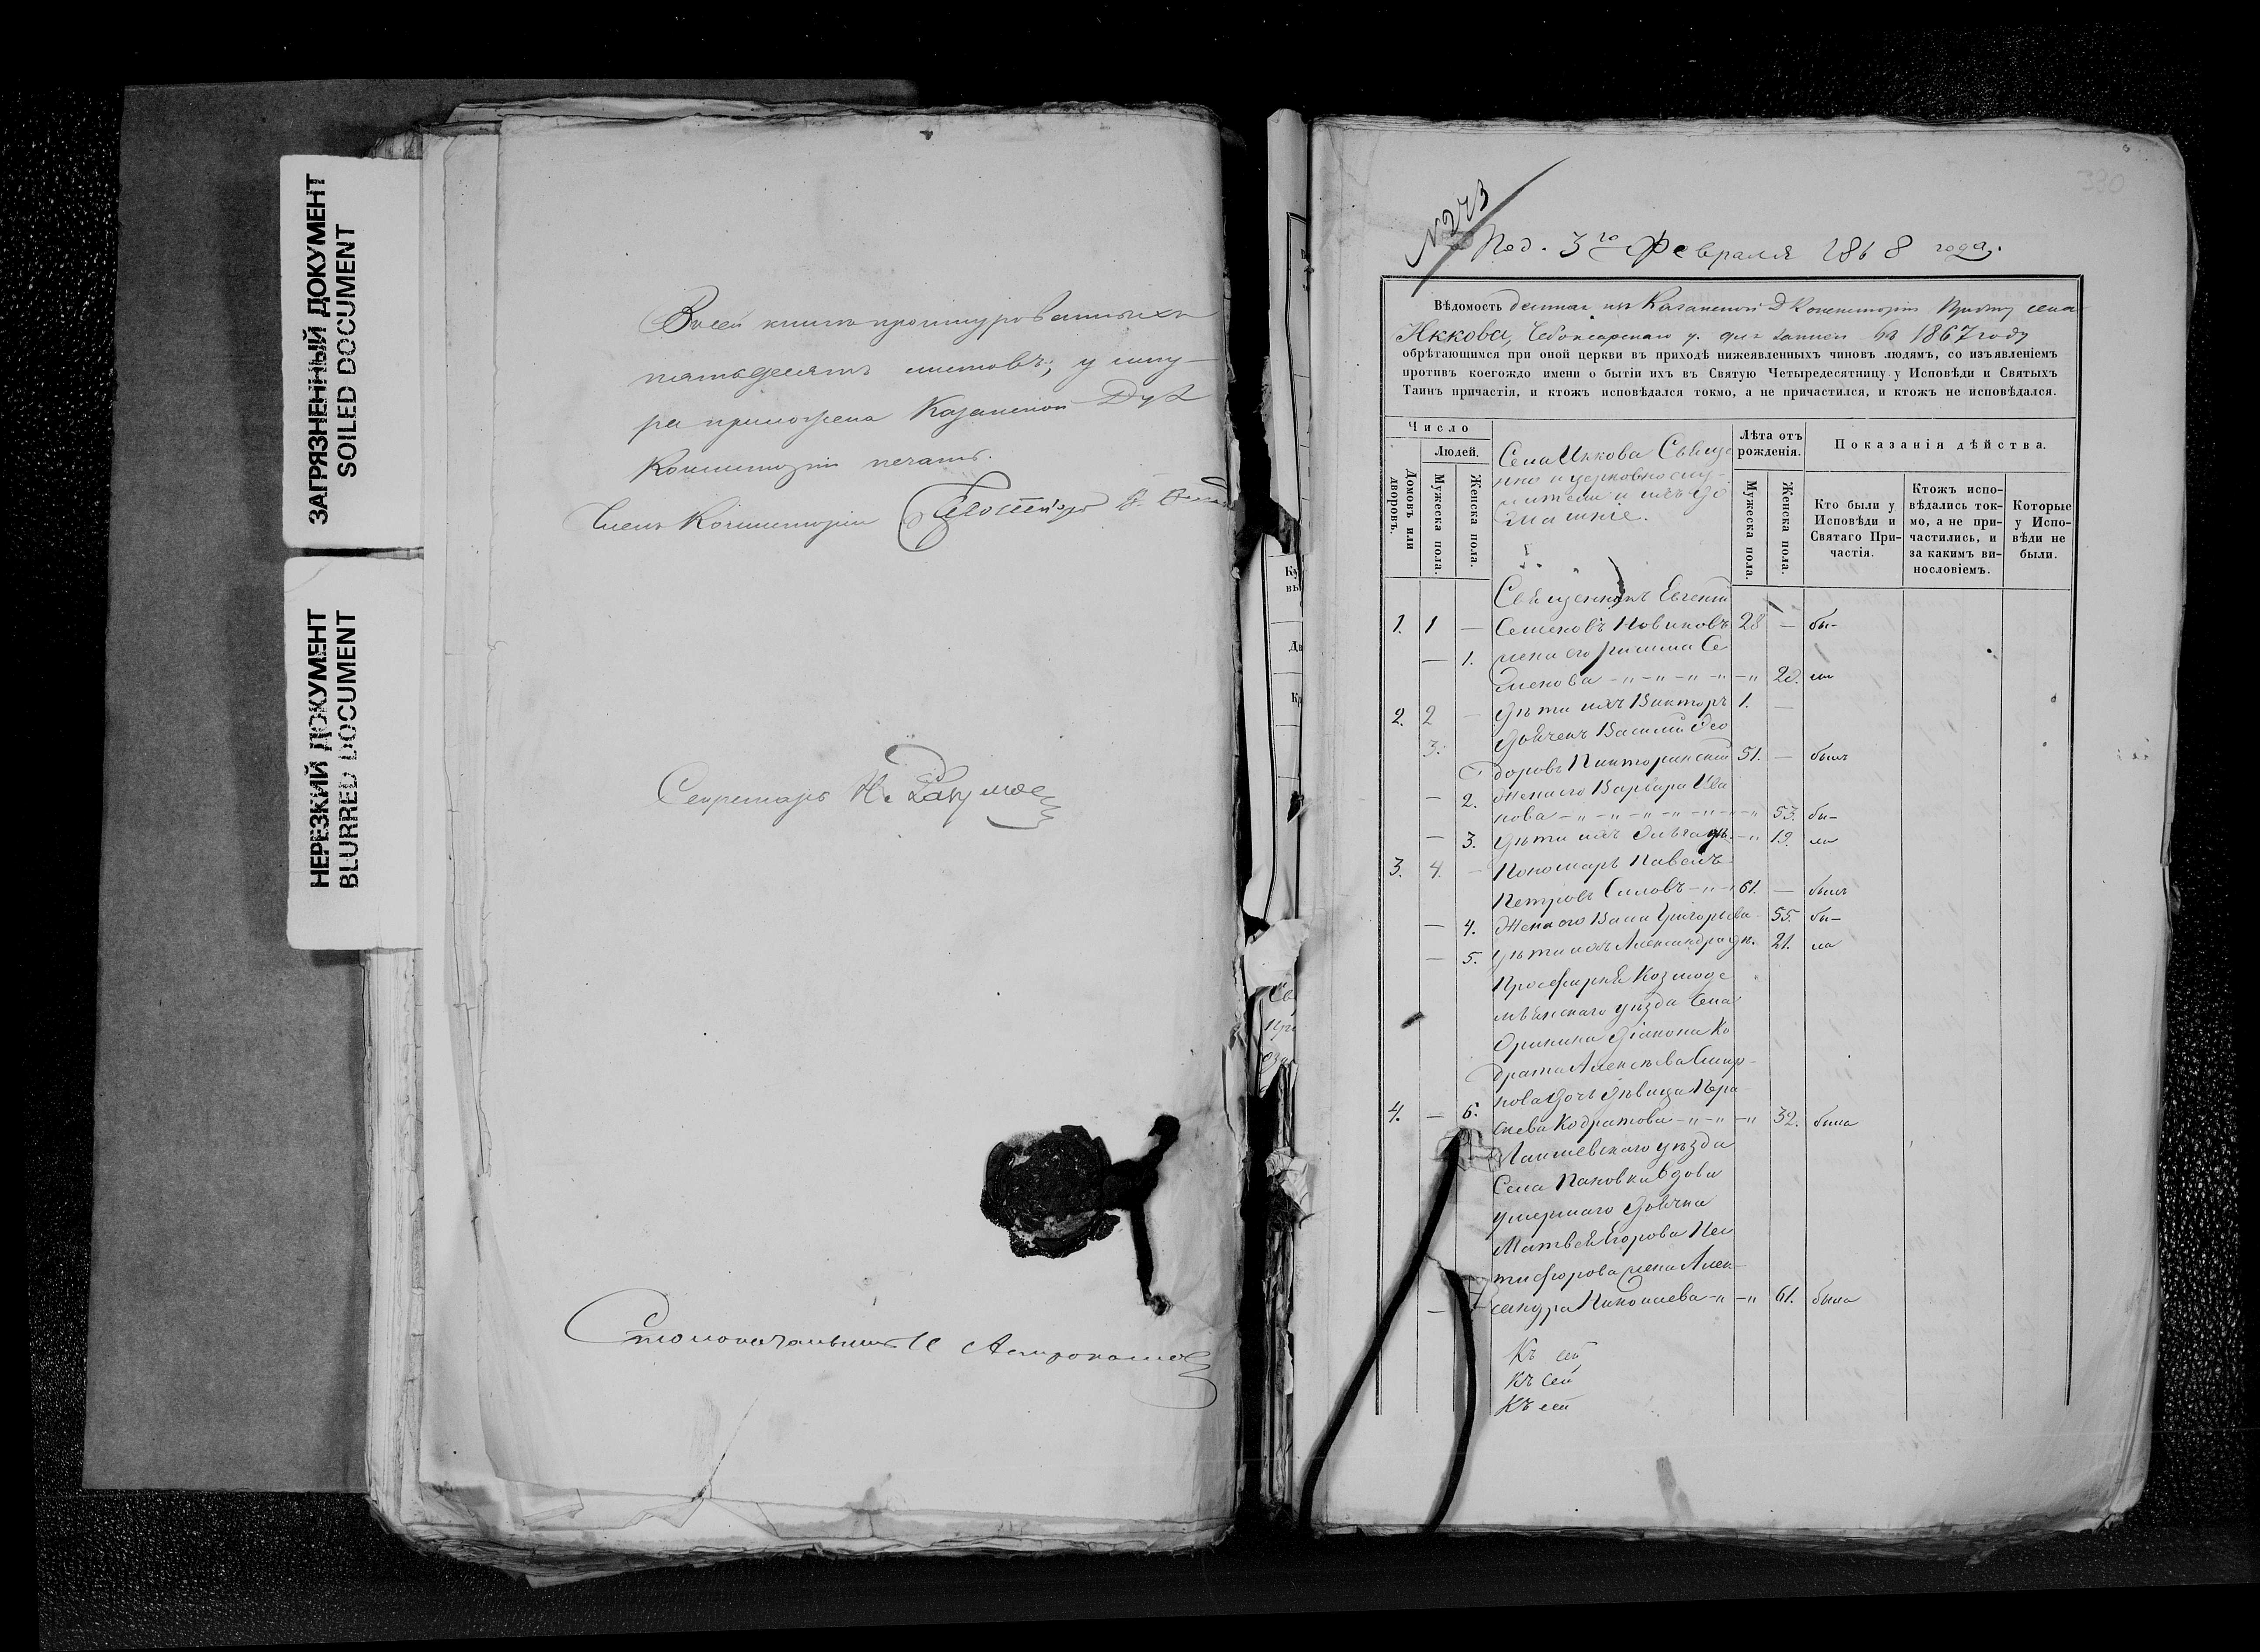 ЗАГРЯЗНЕННЫЙ ДОКУМЕНТ
SOILED DOCUMENT
НЕРЕЗКИЙ ДОКУМЕНТ
BLURRED DOCUMENT
В сей книге прошнурованныхъ
пятьдесятъ листовъ; у шну-
ра приложена Казанской Дух
Консисторіи печать.
Членъ Консисторіи
Секретарь Н.
Столоначальникъ
330
№ 273
Под. 3го Февраля 1868 года.
Вѣдомость данная изъ Казанской Д Консисторіи Причту села
Иккова, Чебоксарскаго у. для записи въ 1867 году
обрѣтающимся при оной церкви въ приходѣ нижеявленныхъ чиновъ людямъ, со изъявленіемъ
противъ коегождо имени о бытіи ихъ въ Святую Четыредесятницу у Исповѣди и Святыхъ
Таинъ причастія, и ктожъ исповѣдался токмо, а не причастился, и ктожъ не исповѣдался.
Число
Людей.
Домовъ или дворовъ.
Мужеска пола.
Женска пола.
Села Иккова Свяще
нно и церковнослу-
жители и ихъ до
машніе.
Лѣта отъ рожденія.
Мужеска пола.
Женска пола.
Показанія дѣйства.
Кто были у Исповѣди и Святаго При- частія.
Ктожъ испо- вѣдались ток- мо, а не при- частились, и за какимъ ви- нословіемъ.
Которые у Испо- вѣди не были.
Священникъ Евгеній
1. 1 — Семеновъ Новиковъ 28 — бы-
— 1. жена его Римма Се
менова 20. ли
2. 2 — дѣти ихъ Викторъ 1. —
3. Дьячекъ Василій Ѳео
доровъ Пикторинскій 51. — былъ
— 2. Жена его Варвара Ива
нова 53. бы-
— 3. дѣти ихъ Ольга дѣ. 19. ли
3. 4. — Пономарь Павелъ
Петровъ Силовъ 61. — былъ
— 4. Жена его Васа Григорьева 55. бы-
— 5. дѣти ихъ Александра дѣ. 21. ла
Просфирня Козмоде
мьянскаго уѣзда Села
Оринина діакона Ко
драта Алексѣева Смир-
нова дочь дѣвица Пара
4. — 6. скева Кодратова 32. была
Лаишевскаго уѣзда
Села Пановки вдова
умершаго дьячка
Матвея Егорова Ни
кифорова жена Алек-
— 7. сандра Николаева 61. была
Къ сей
Къ сей
Къ сей